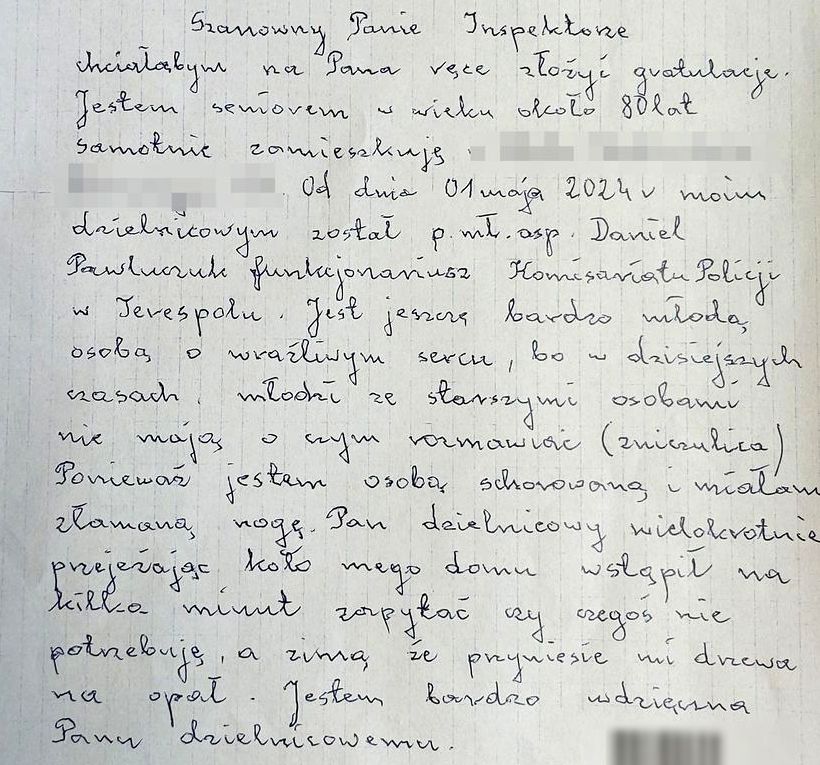 Szanowny Panie Inspektorze
chciałabym na Pana ręce złożyć gratulacje.
Jestem seniorem w wieku około 80 lat
samotnie zamieszkuję
Od dnia 01 maja 2024 r moim
dzielnicowym został p. mł. asp. Daniel
Pawluczuk funkcjonariusz Komisariatu Policji
w Terespolu. Jest jeszcze bardzo młodą
osobą o wrażliwym sercu, bo w dzisiejszych
czasach, młodzi ze starszymi osobami
nie mają o czym rozmawiać (znieczulica)
Ponieważ jestem osobą schorowaną i miałam
złamaną nogę. Pan dzielnicowy wielokrotnie
przejeżając koło mego domu wstąpił na
kilka minut zapytać czy czegoś nie
potrzebuję, a zimą że przyniesie mi drzewa
na opał. Jestem bardzo wdzięczna
Panu dzielnicowemu.